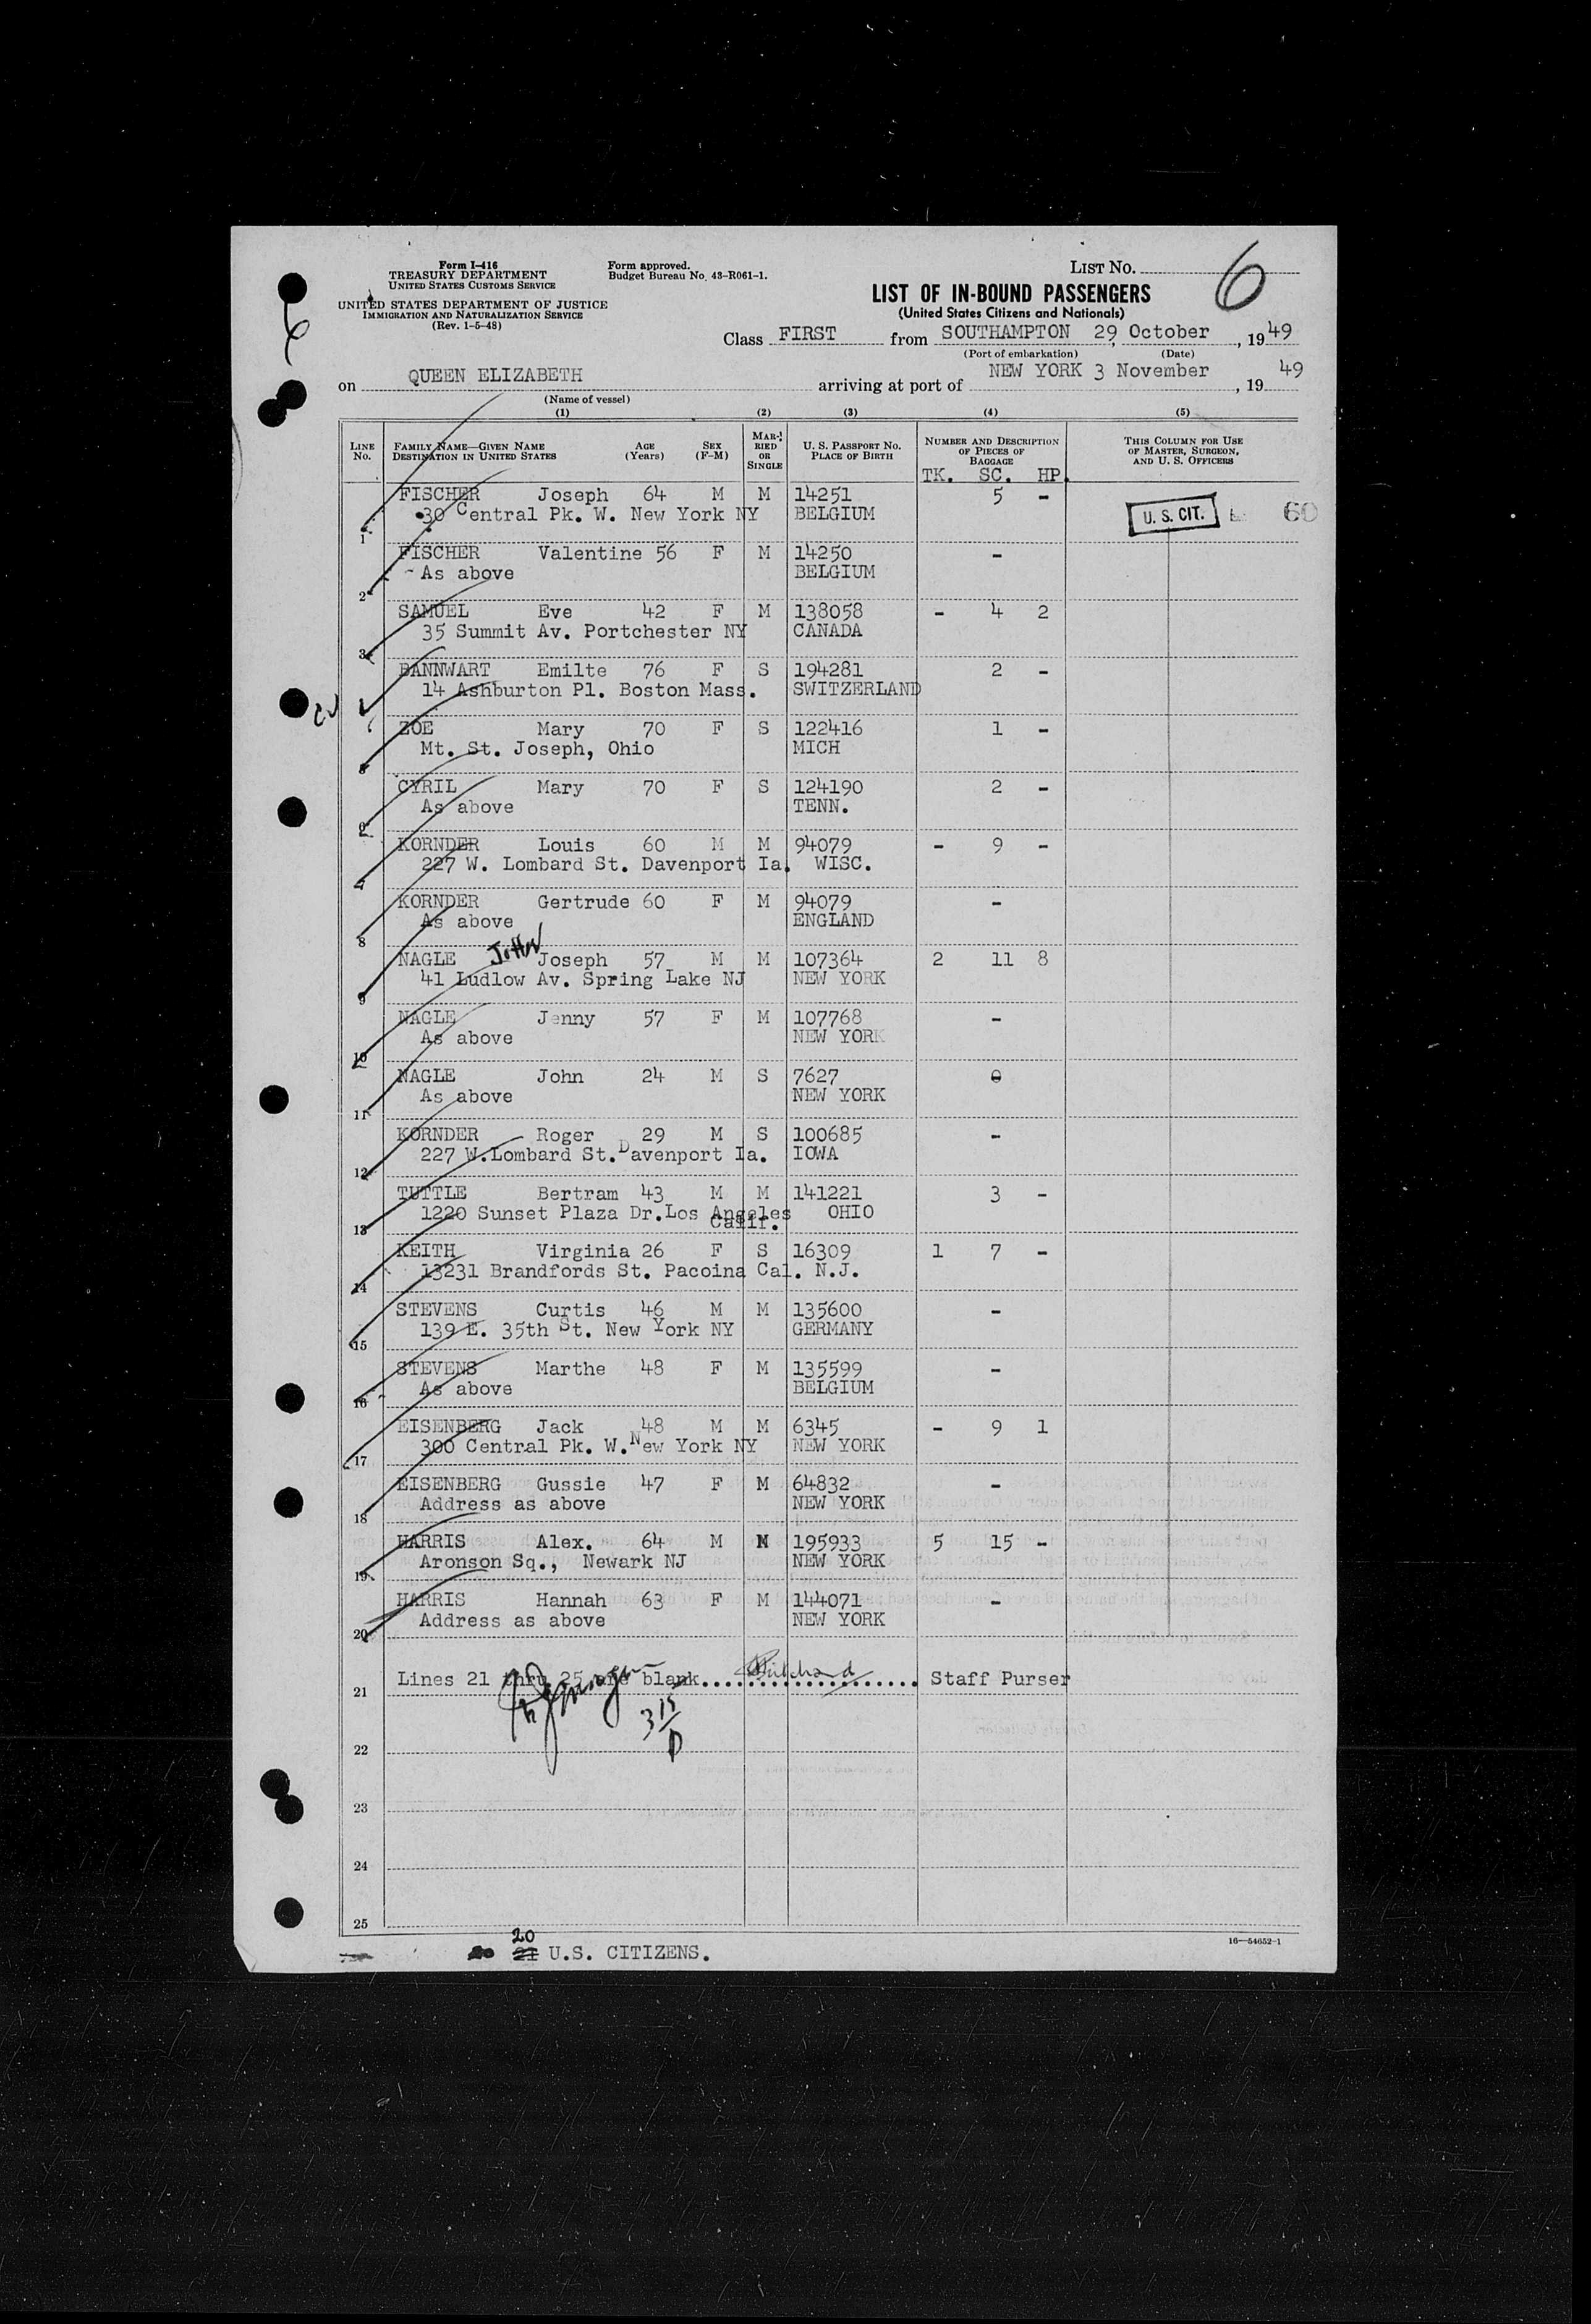 Form I-416
TREASURY DEPARTMENT
UNITED STATES CUSTOMS SERVICE
UNITED STATES DEPARTMENT OF JUSTICE
IMMIGRATION AND NATURALIZATION SERVICE
(Rev. 1-5-48)
Form approved.
Budget Bureau No. 43-R061-1.
LIST No. 6
LIST OF IN-BOUND PASSENGERS
(United States Citizens and Nationals)
Class FIRST from SOUTHAMPTON 29, October, 1949
(Port of embarkation) (Date)
on QUEEN ELIZABETH arriving at port of NEW YORK 3 November, 1949
(Name of vessel)
(1) (2) (3) (4) (5)
LINE No. FAMILY NAME—GIVEN NAME DESTINATION IN UNITED STATES AGE (Years) SEX (F-M) MARRIED OR SINGLE U. S. PASSPORT No. PLACE OF BIRTH NUMBER AND DESCRIPTION OF PIECES OF BAGGAGE THIS COLUMN FOR USE OF MASTER, SURGEON, AND U. S. OFFICERS
TK. SC. HP.
FISCHER Joseph 64 M M 14251 5 -
1 30 Central Pk. W. New York NY BELGIUM U. S. CIT. 60
FISCHER Valentine 56 F M 14250 -
2 As above BELGIUM
SAMUEL Eve 42 F M 138058 - 4 2
3 35 Summit Av. Portchester NY CANADA
BANNWART Emilte 76 F S 194281 2 -
14 Ashburton Pl. Boston Mass. SWITZERLAND
ZOE Mary 70 F S 122416 1 -
Mt. St. Joseph, Ohio MICH
CYRIL Mary 70 F S 124190 2 -
6 As above TENN.
KORNDER Louis 60 M M 94079 - 9 -
7 227 W. Lombard St. Davenport Ia. WISC.
KORNDER Gertrude 60 F M 94079 -
8 As above ENGLAND
NAGLE Joseph 57 M M 107364 2 11 8
9 41 Ludlow Av. Spring Lake NJ NEW YORK
NAGLE Jenny 57 F M 107768 -
10 As above NEW YORK
NAGLE John 24 M S 7627 -
11 As above NEW YORK
KORNDER Roger 29 M S 100685 -
12 227 W.Lombard St.Davenport Ia. IOWA
TUTTLE Bertram 43 M M 141221 3 -
13 1220 Sunset Plaza Dr.Los Angeles Calif. OHIO
KEITH Virginia 26 F S 16309 1 7 -
14 13231 Brandfords St. Pacoina Cal. N.J.
STEVENS Curtis 46 M M 135600 -
15 139 E. 35th St. New York NY GERMANY
STEVENS Marthe 48 F M 135599 -
16 As above BELGIUM
EISENBERG Jack 48 M M 6345 - 9 1
17 300 Central Pk. W. New York NY NEW YORK
EISENBERG Gussie 47 F M 64832 -
18 Address as above NEW YORK
HARRIS Alex. 64 M M 195933 5 15 -
19 Aronson Sq., Newark NJ NEW YORK
HARRIS Hannah 63 F M 144071 -
20 Address as above NEW YORK
21 Lines 21 thru 25 are blank.................... Staff Purser
22
23
24
25
20
21 U.S. CITIZENS.
16—54652-1